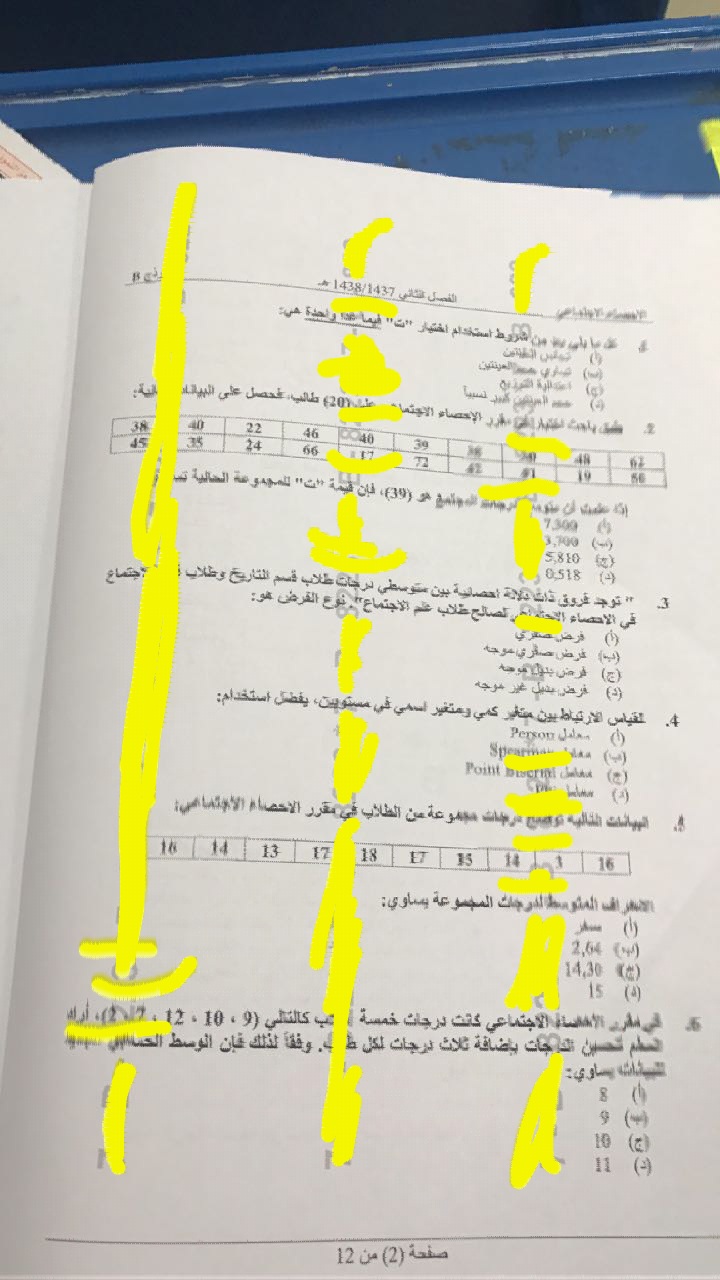 الاحصاء الاجتماعي الفصل الثاني 1438/1437 هـ B
1. كل ما يلي يعد من شروط استخدام اختبار "ت" فيما عدا واحدة هي:
(أ) تجانس العينتين
(ب) تساوي حجم العينتين
(ج) اعتدالية التوزيع
(د) حجم العينتين كبير نسبياً
2. طبق باحث اختبار في مقرر الإحصاء الاجتماعي على (20) طالب، فحصل على البيانات التالية:
62 48 50 38 39 40 46 22 40 38
56 19 41 42 72 17 66 24 35 45
إذا علمت أن متوسط درجات المجتمع هو (39)، فإن قيمة "ت" للمجموعة الحالية
(أ) 7,300
(ب) 3,700
(ج) 5,810
(د) 0,518
3. " توجد فروق ذات دلالة احصائية بين متوسطي درجات طلاب قسم التاريخ وطلاب الاجتماع
في الاحصاء الاجتماعي لصالح طلاب علم الاجتماع". نوع الفرض هو:
(أ) فرض صفري
(ب) فرض صفري موجه
(ج) فرض بديل موجه
(د) فرض بديل غير موجه
4. لقياس الارتباط بين متغير كمي ومتغير اسمي في مستويين، يفضل استخدام:
(أ) معامل Person
(ب) معامل Spearman
(ج) معامل Point Biserial
(د) معامل
5. البيانات التالية توضح درجات مجموعة من الطلاب في مقرر الاحصاء الاجتماعي:
16 3 14 15 17 18 17 13 14 16
الانحراف المتوسط لدرجات المجموعة يساوي:
(أ) صفر
(ب) 2,64
(ج) 14,30
(د) 15
6. في مقرر الاحصاء الاجتماعي كانت درجات خمسة كالتالي (9 ، 10 ، 12 ، 7 ، 2)، أراد
المعلم تحسين الدرجات بإضافة ثلاث درجات لكل طالب. وفقاً لذلك فإن الوسط الحسابي
للبيانات يساوي:
(أ) 8
(ب) 9
(ج) 10
(د) 11
صفحة (2) من 12